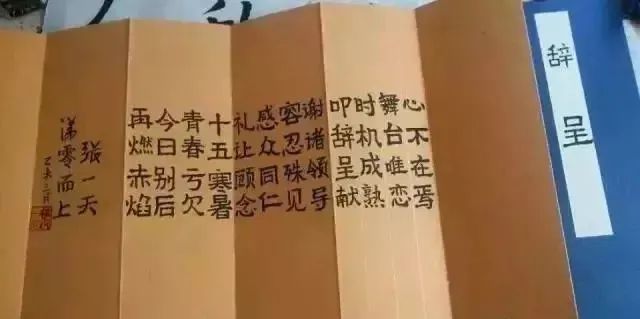 辞呈
心不在焉
舞台唯恋
时机成熟
叩辞呈献
谢诸领导
容忍殊见
感众同仁
礼让顾念
十五寒暑
青春亏欠
今日别后
再燃赤焰
张一天
涕零而上
乙未三月